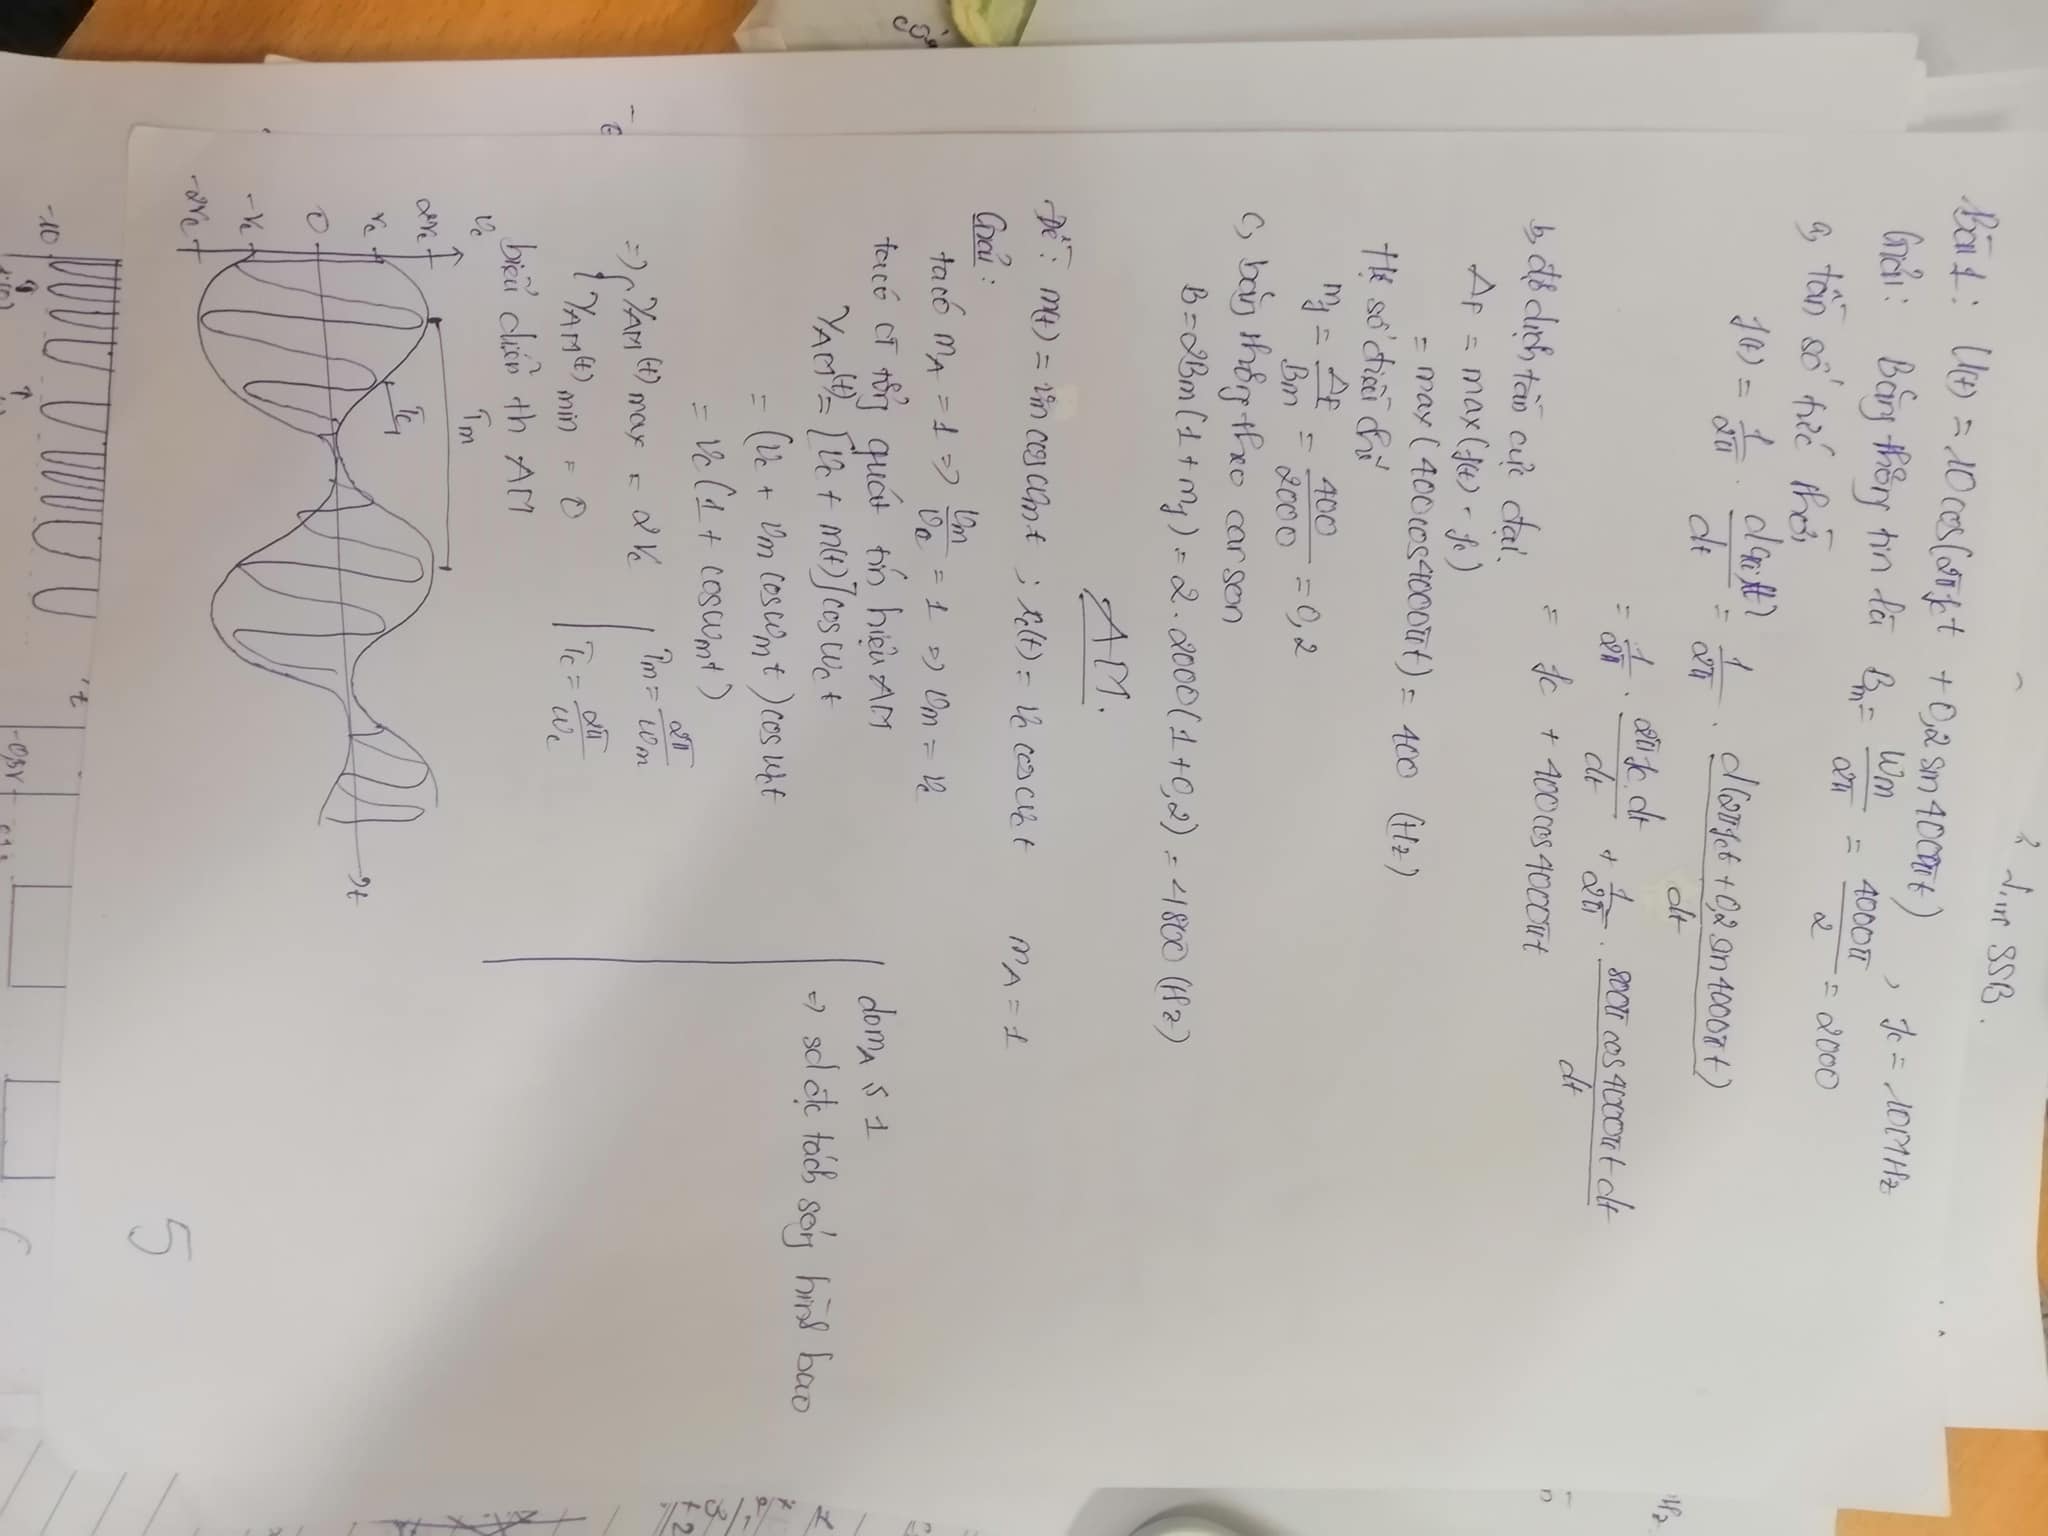 Bài 1: U(t) = 10cos(2πfct + 0,2 sin 4000πt) , fc = 10MHz
Giải: Băng thông tin là Bm = Wm/2π = 4000π/2 = 2000
a, tần số tức thời
f(t) = 1/2π . d(φi(t))/dt = 1/2π . d(2πfct + 0,2 sin 4000πt)/dt
= 1/2π . 2πfc.dt/dt + 1/2π . 800π cos 4000πt dt/dt
= fc + 400cos4000πt
b, độ dịch tần cực đại
ΔF = max(f(t) - fc)
= max(400cos4000πt) = 400 (Hz)
Hệ số điều chế
mf = ΔF/Bm = 400/2000 = 0,2
c, băng thông theo carson
B = 2Bm(1 + mf) = 2.2000(1+0,2) = 4800 (Hz)
AM.
Đề: m(t) = vm cos ωmt ; xc(t) = vc cos ωct mA = 1
Giải:
ta có mA = 1 => vm/vc = 1 => vm = vc
ta có CT tổng quát tín hiệu AM
YAM(t) = [vc + m(t)]cos ωct
= (vc + vm cos ωmt) cos ωct
= vc (1 + cos ωmt)
=> { YAM(t) max = 2vc
YAM(t) min = 0
Tm = 2π/ωm
Tc = 2π/ωc
biểu diễn th AM
do mA ≤ 1
=> sd đc tách sóng hình bao
vc
2vc
vc
0
-vc
-2vc
Tm
Tc
t
5
2 lần SSB.
-10
t